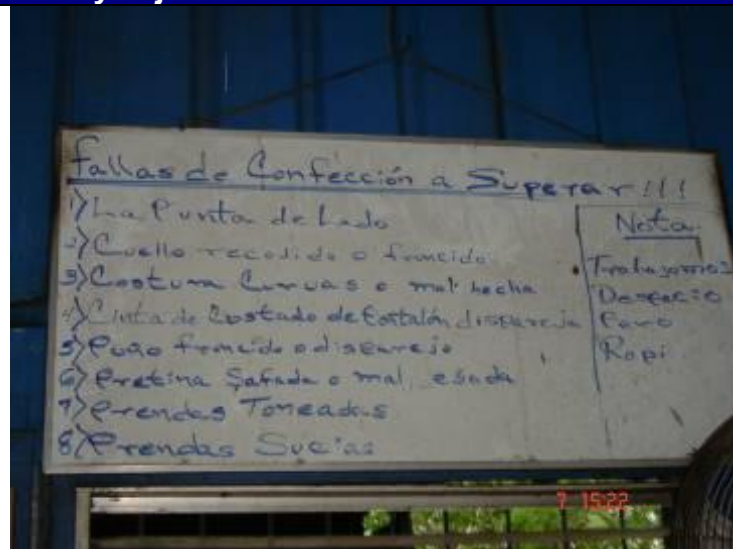 Fallas de Confección a Superar!!!
1) La Punta de Lado
2) Cuello recogido o fruncido
3) Costura Curvas o mal hecha
4) Cinta de Costado de Pantalón dispareja
5) Puño fruncido o disparejo
6) Pretina Safada o mal
7) Prendas
8) Prendas Sucias
Nota
Trabajamos
Despacio
Pero
Rapi
7 15:22